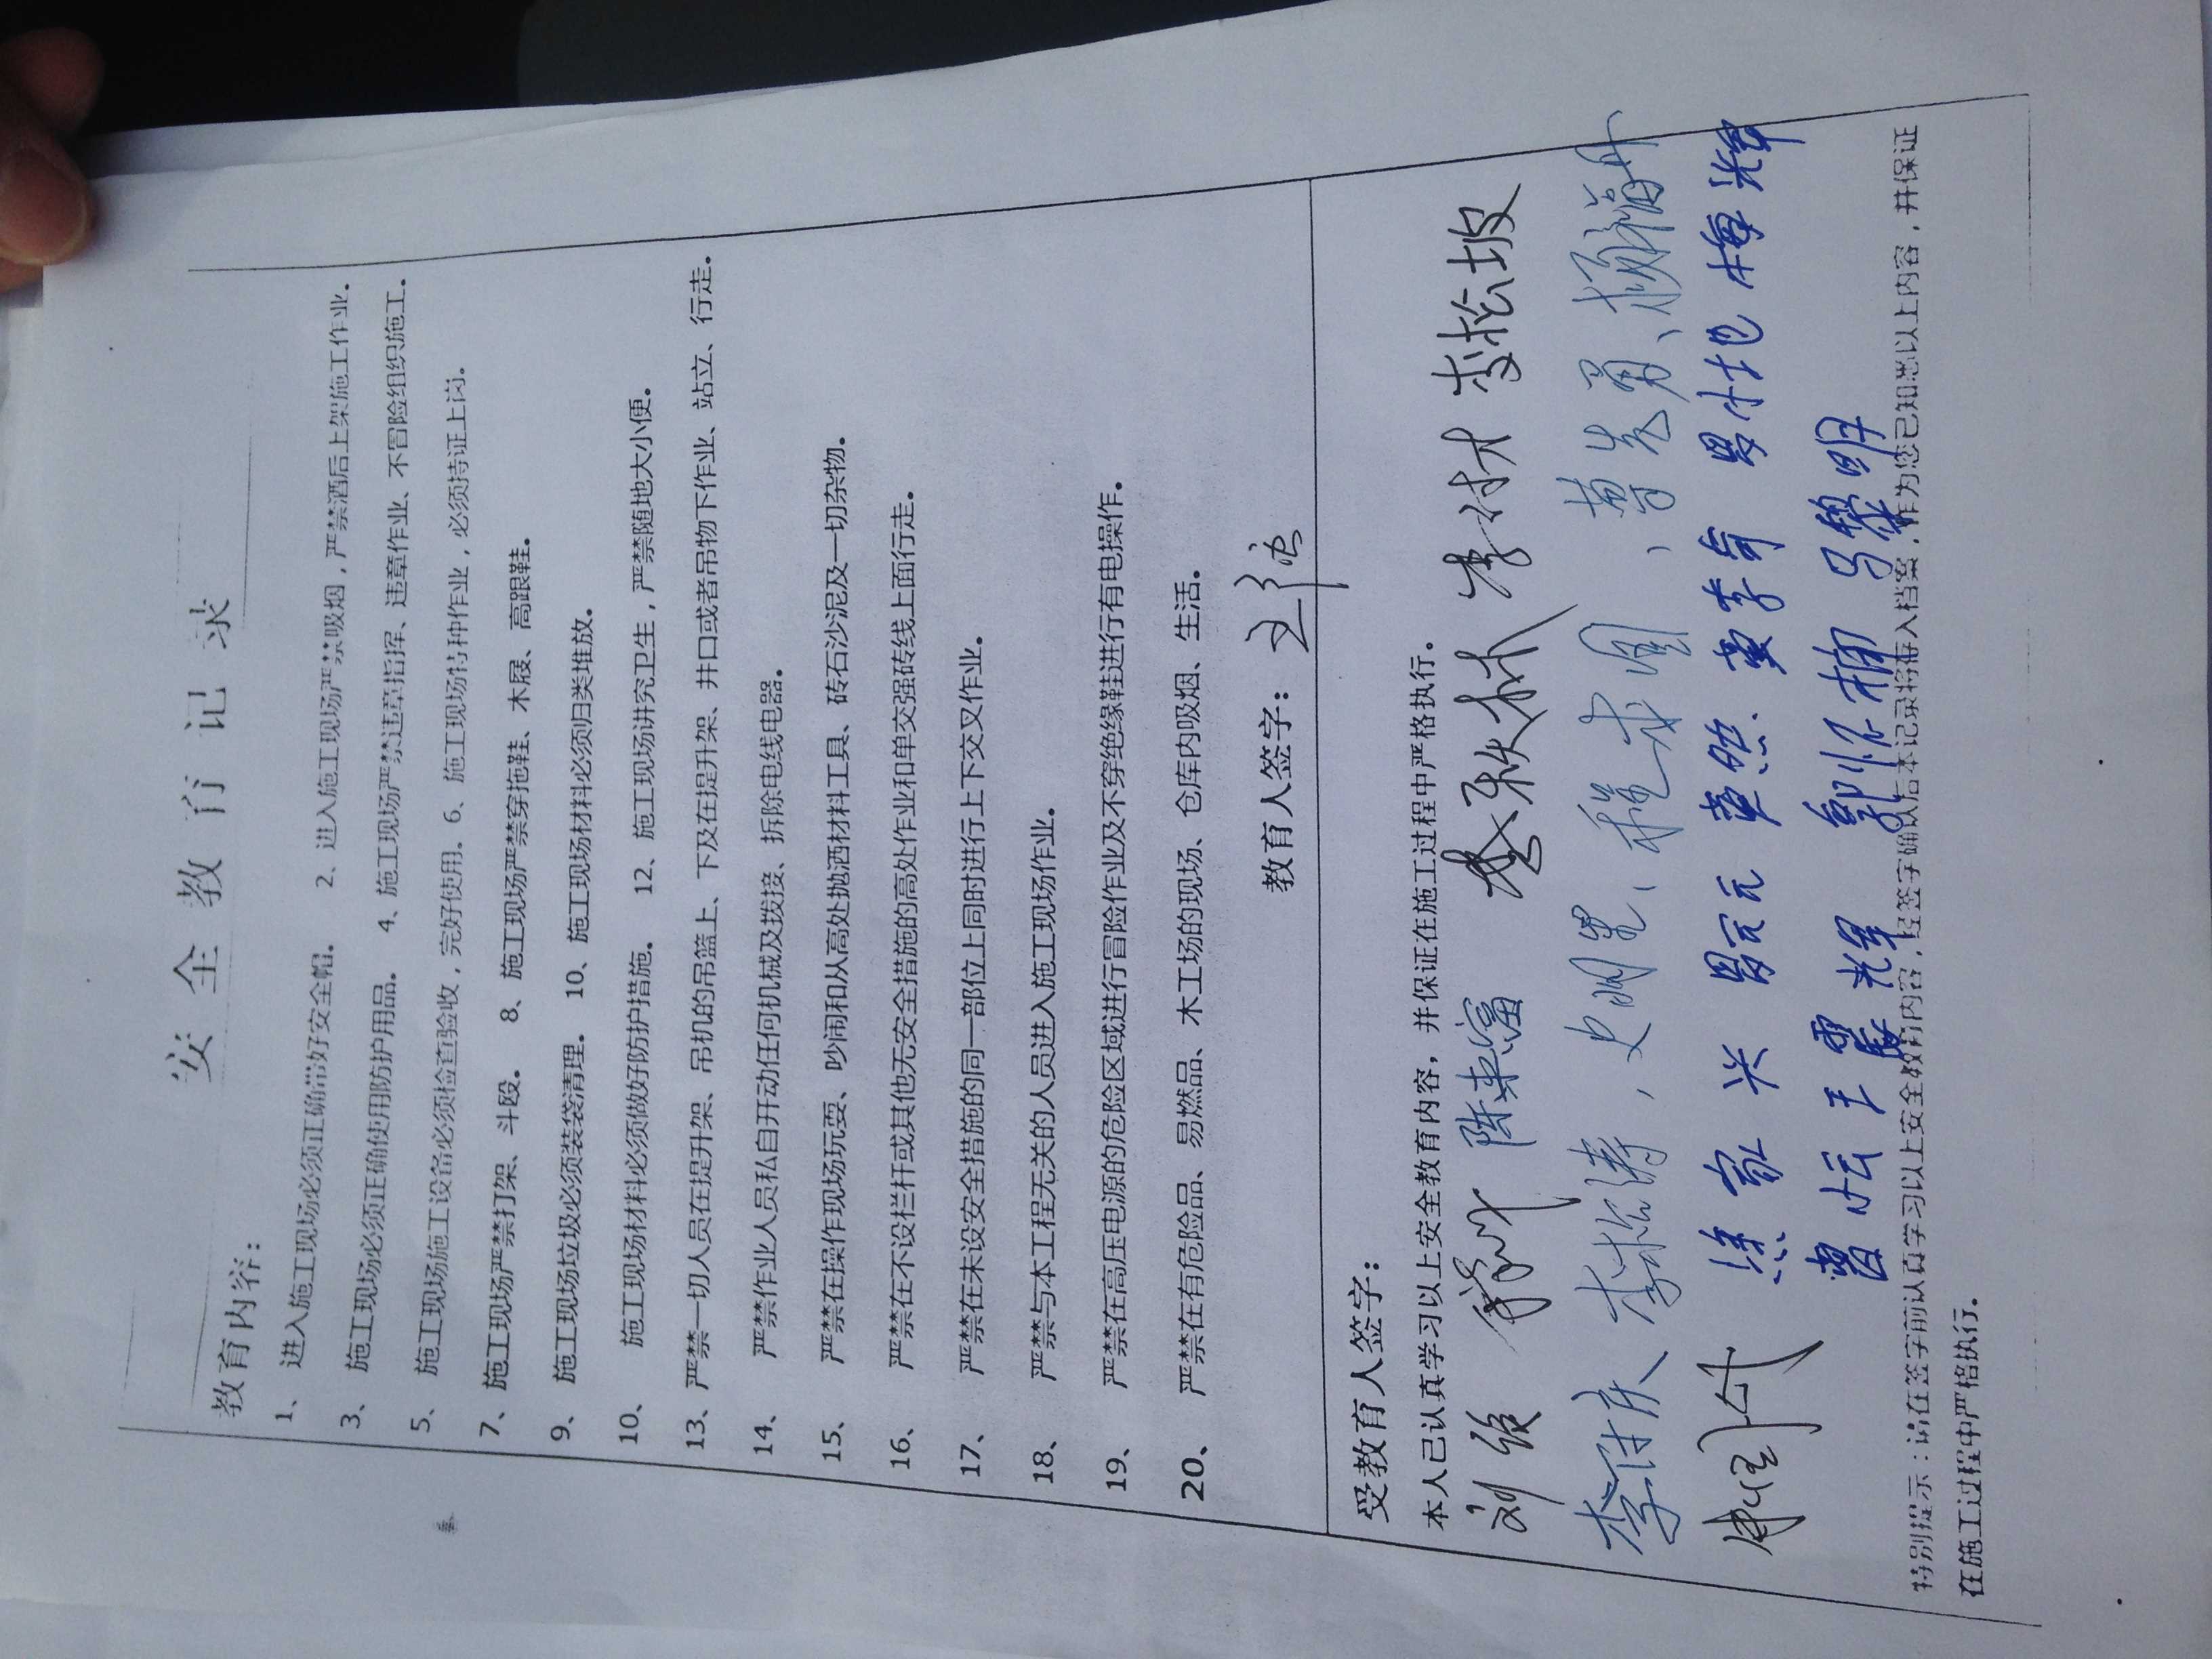 安全教育记录
教育内容：
1、进入施工现场必须正确带好安全帽。 2、进入施工现场严禁吸烟，严禁酒后上架施工作业。
3、施工现场必须正确使用防护用品。 4、施工现场严禁违章指挥、违章作业、不冒险组织施工。
5、施工现场施工设备必须检查验收，完好使用。6、施工现场特种作业，必须持证上岗。
7、施工现场严禁打架、斗殴。 8、施工现场严禁穿拖鞋、木屐、高跟鞋。
9、施工现场垃圾必须装袋清理。 10、施工现场材料必须归类堆放。
10、施工现场材料必须做好防护措施。 12、施工现场讲究卫生，严禁随地大小便。
13、严禁一切人员在提升架、吊机的吊篮上、下及在提升架、井口或者吊物下作业、站立、行走。
14、严禁作业人员私自开动任何机械及拨接、拆除电线电器。
15、严禁在操作现场玩耍、吵闹和从高处抛洒材料工具、砖石沙泥及一切杂物。
16、严禁在不设栏杆或其他无安全措施的高处作业和单交强砖线上面行走。
17、严禁在未设安全措施的同一部位上同时进行上下交叉作业。
18、严禁与本工程无关的人员进入施工现场作业。
19、严禁在高压电源的危险区域进行冒险作业及不穿绝缘鞋进行有电操作。
20、严禁在有危险品、易燃品、木工场的现场、仓库内吸烟、生活。
教育人签字：
受教育人签字：
本人已认真学习以上安全教育内容，并保证在施工过程中严格执行。
刘俊 陈来富 李松坡
李松涛
郭怀楠
特别提示：请在签字前认真学习以上安全教育内容，经签字确认后本记录将存入档案，作为您已知悉以上内容，并保证
在施工过程中严格执行。